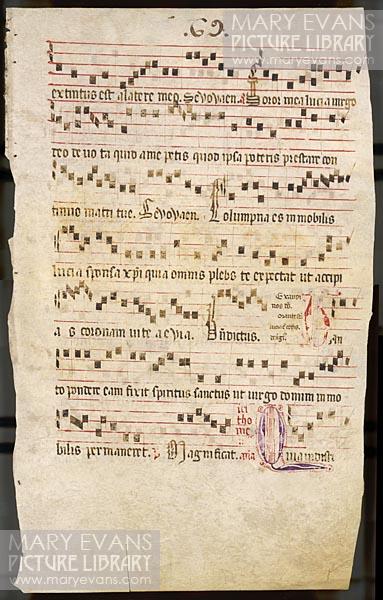 .69.
MARY EVANS
PICTURE LIBRARY
www.maryevans.com
extintus est a latere meo. Seuouaen. a Soror mea lucia virgo
deo deuota quid a me petis quod ipsa poteris prestare con
tinuo matri tue. Seuouaen. Columpna es immobilis
lucia sponsa xpi quia omnis plebs te expectat ut accipi
as coronam vite aevia. Bndictus. Tan
to pondere eam fixit spiritus sanctus ut virgo domini immo
bilis permaneret. Magnificat.
MARY EVANS
PICTURE LIBRARY
www.maryevans.com
MARY EVANS
PICTURE LIBRARY
www.maryevans.com